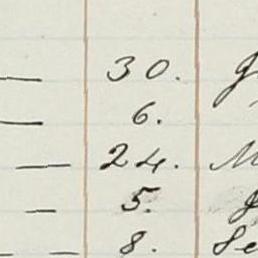 — 30.
— 6.
— 24. M
— 5.
— — 8. Se